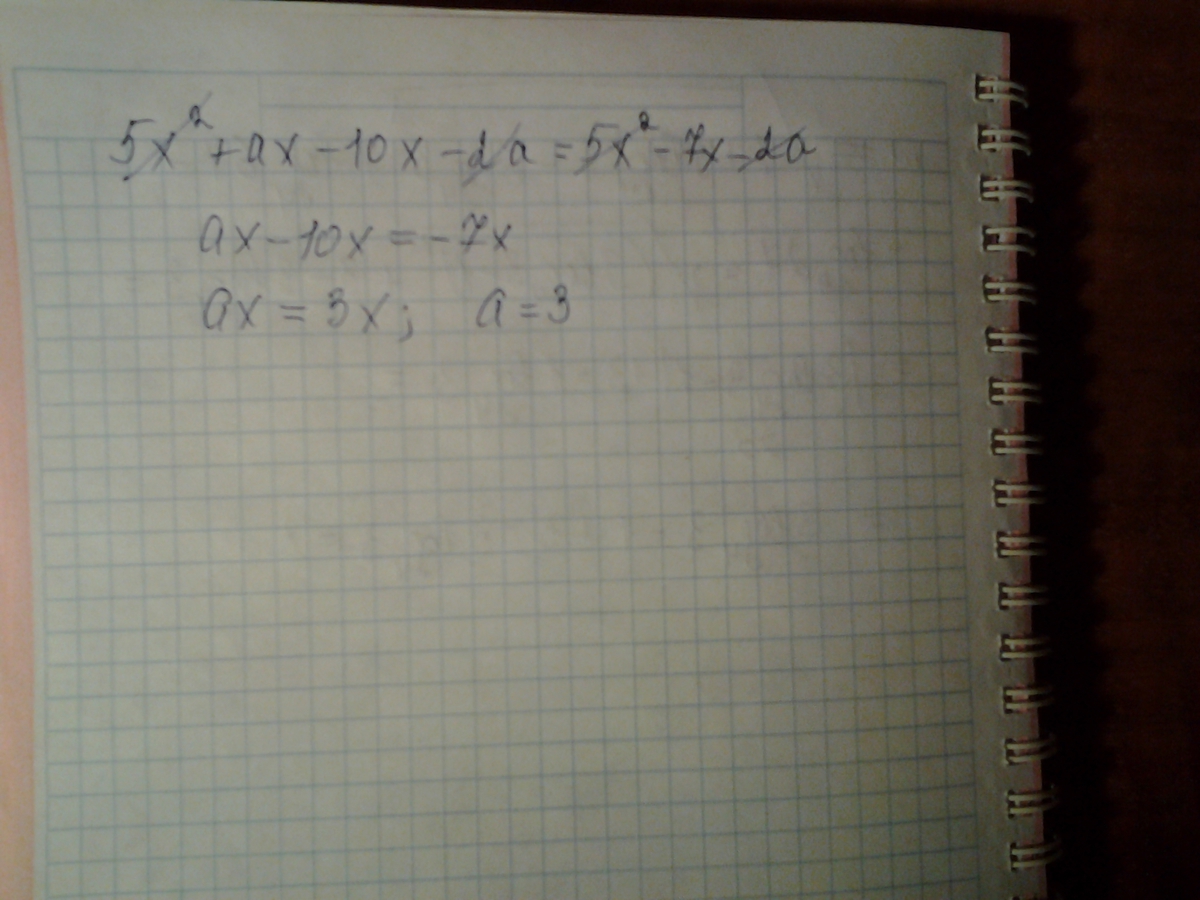 5x² + ax - 10x - 2a = 5x² - 7x - 2a
ax - 10x = -7x
ax = 3x; a = 3